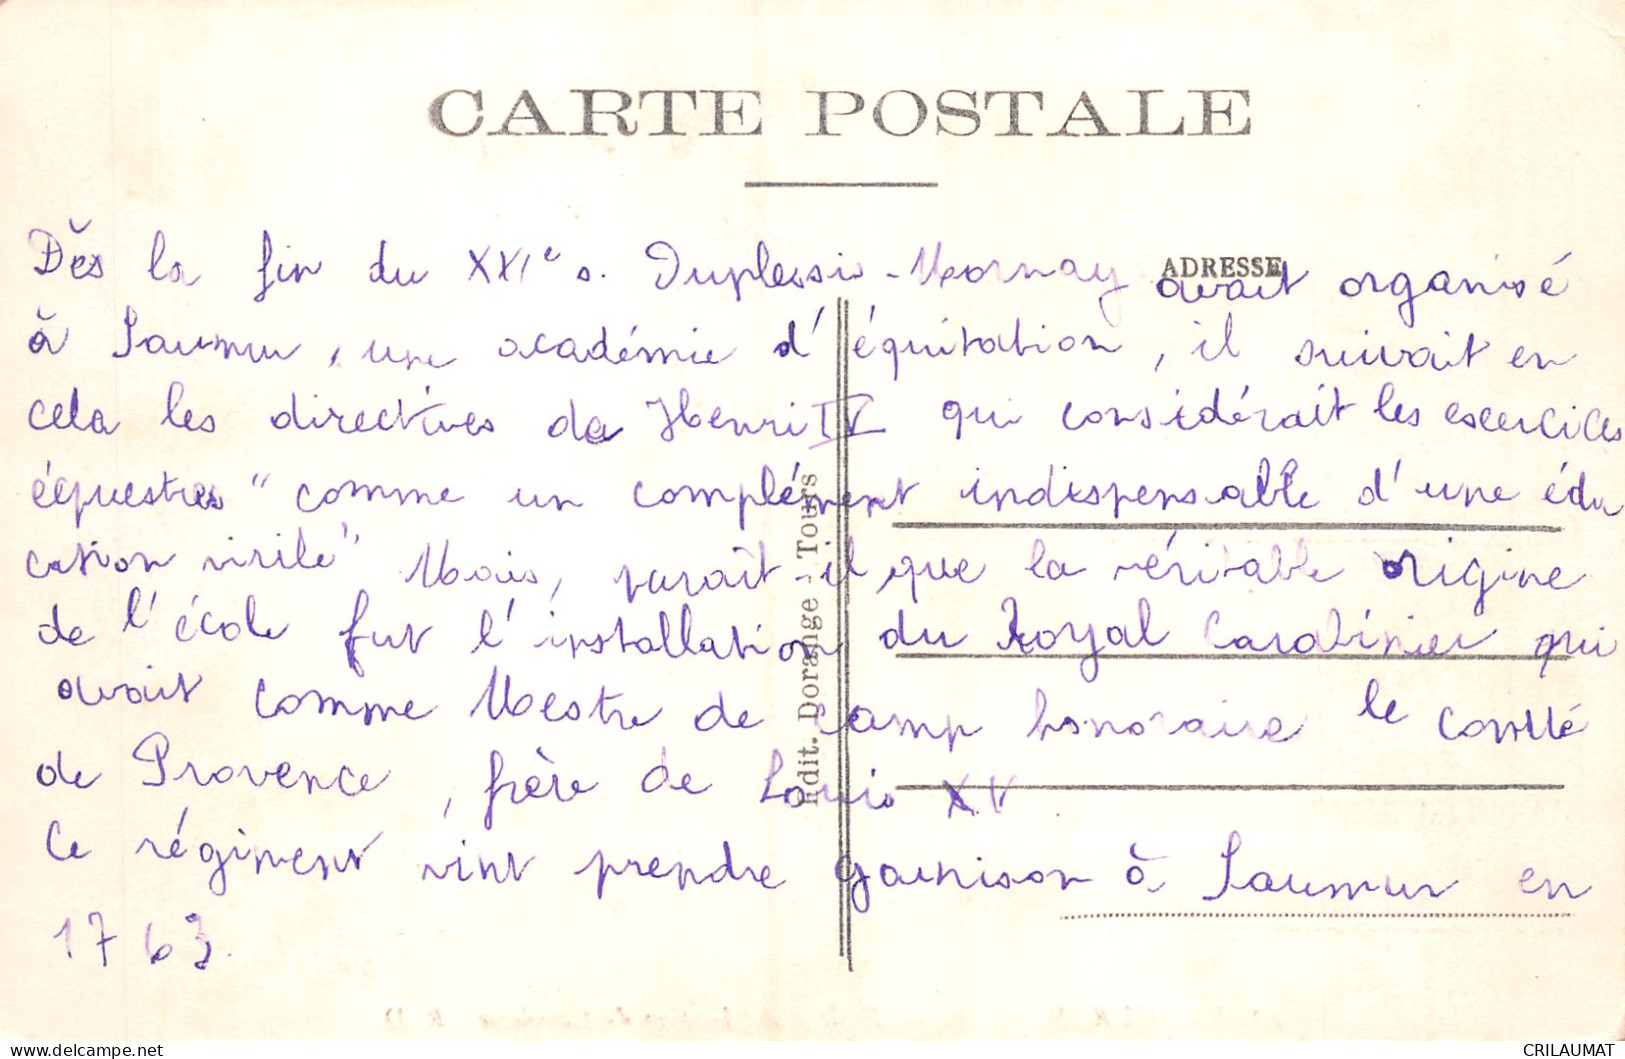 CARTE POSTALE
Dès la fin du XXIe s. Duplessis-Mornay avait organisé
ADRESSE
à Saumur, une académie d'équitation, il suivait en
cela les directives de Henri IV qui considérait les exercices
équestres "comme un complément indispensable d'une édu
cation virile" Mais, paraît-il que la véritable origine
de l'école fut l'installation du Royal Carabinier qui
avait comme Mestre de Camp honoraire le comté
de Provence, frère de Louis XV
Ce régiment vint prendre garnison à Saumur en
1763.
Edit. Dorange - Tours
CRILAUMAT